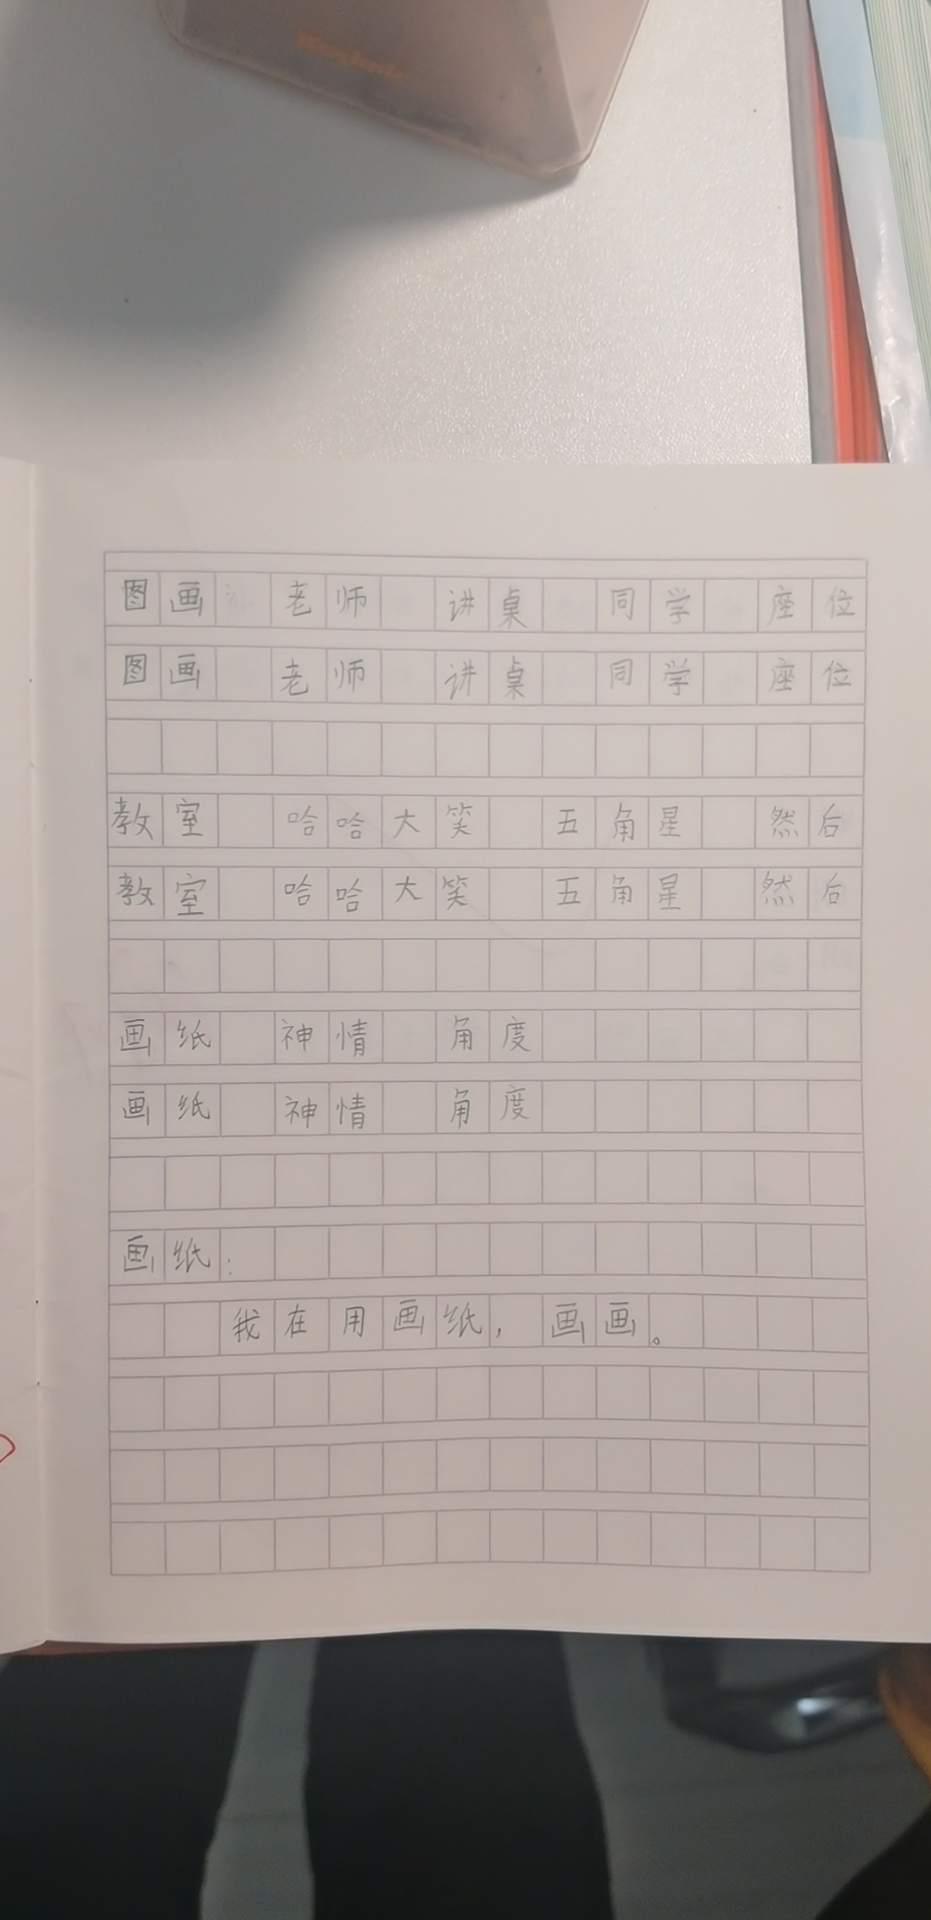 图画 老师 讲桌 同学 座位
图画 老师 讲桌 同学 座位
教室 哈哈大笑 五角星 然后
教室 哈哈大笑 五角星 然后
画纸 神情 角度
画纸 神情 角度
画纸：
我在用画纸，画画。